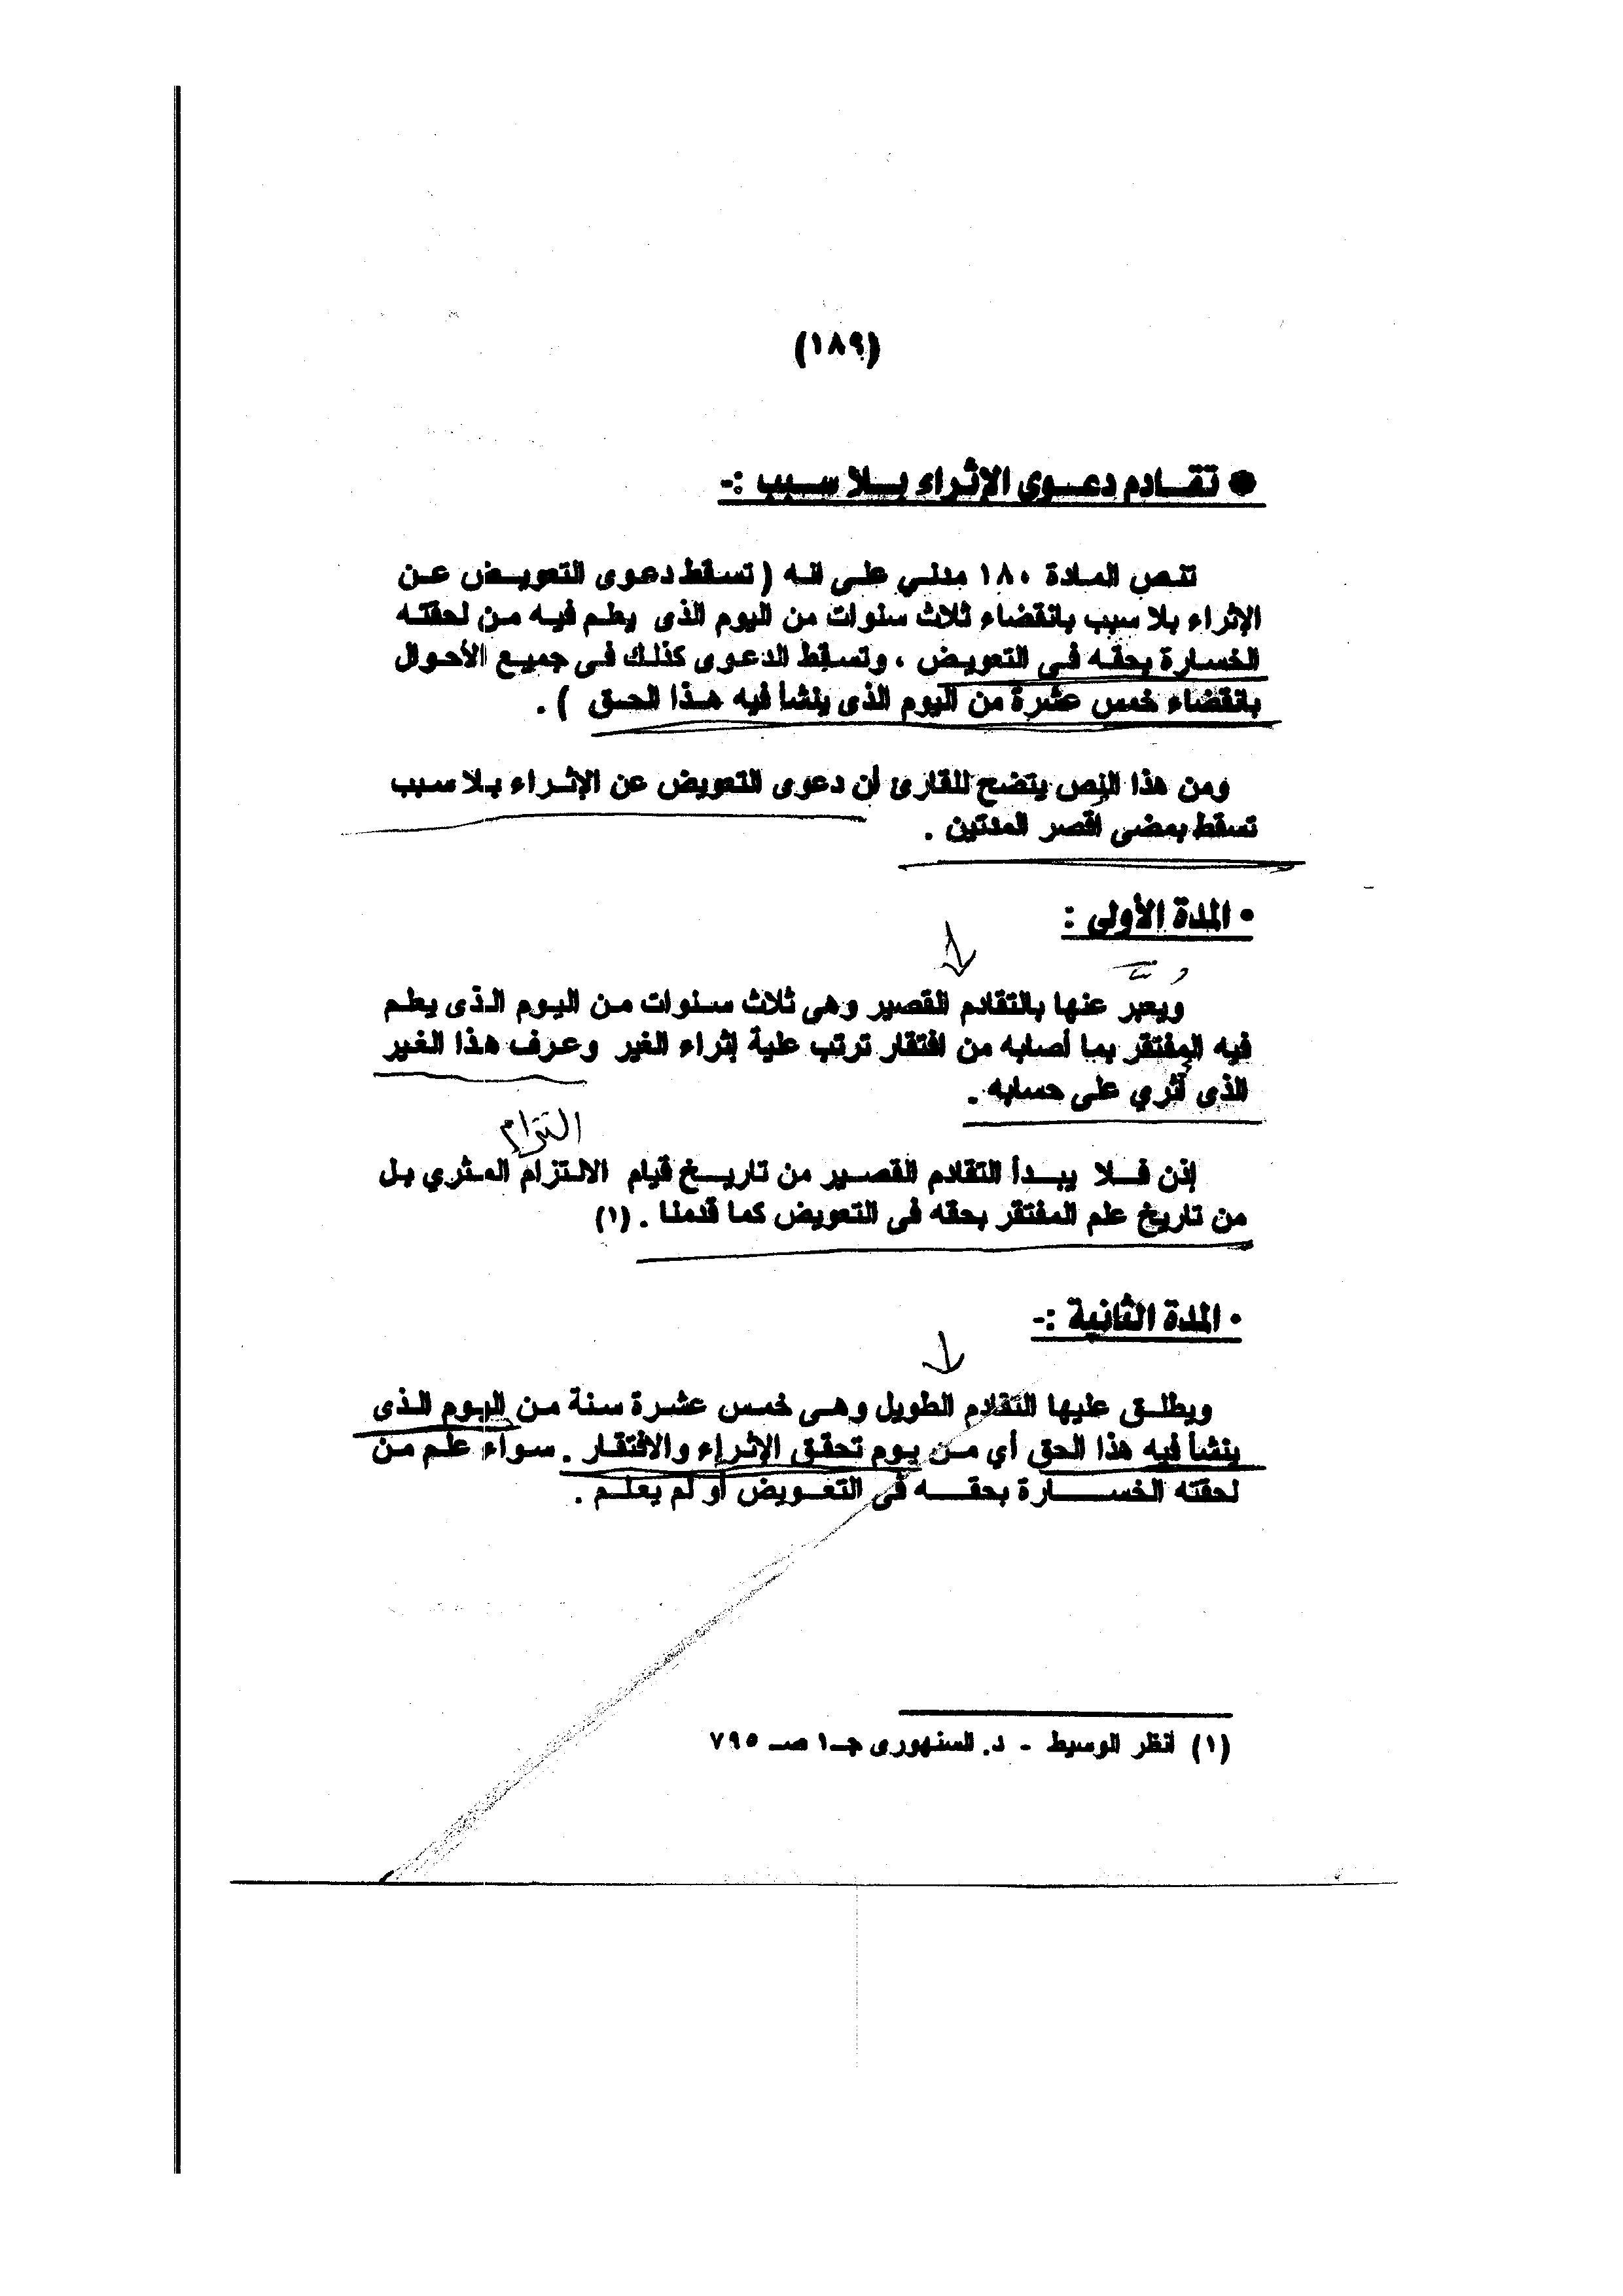 (١٨٩)
● تقادم دعوى الإثراء بلا سبب :-
تنص المادة ١٨٠ مدني على انه ( تسقط دعوى التعويض عن
الإثراء بلا سبب بانقضاء ثلاث سنوات من اليوم الذى يعلم فيه من لحقته
الخسارة بحقه فى التعويض ، وتسقط الدعوى كذلك فى جميع الأحوال
بانقضاء خمس عشرة من اليوم الذى ينشأ فيه هذا الحق ) .
ومن هذا النص يتضح للقارئ أن دعوى التعويض عن الإثراء بلا سبب
تسقط بمضى أقصر المدتين .
• المدة الأولى :
ويعبر عنها بالتقادم القصير وهى ثلاث سنوات من اليوم الذى يعلم
فيه المفتقر بما أصابه من افتقار ترتب علية إثراء الغير وعرف هذا الغير
الذى أثري على حسابه .
التزام
إذن فلا يبدأ التقادم القصير من تاريخ قيام الالتزام المثري بل
من تاريخ علم المفتقر بحقه فى التعويض كما قدمنا . (١)
• المدة الثانية :-
ويطلق عليها التقادم الطويل وهى خمس عشرة سنة من اليوم الذى
ينشأ فيه هذا الحق أي من يوم تحقق الإثراء والافتقار . سواء علم من
لحقته الخسارة بحقه فى التعويض أو لم يعلم .
(١) انظر الوسيط - د. السنهورى جـ١ صـ ٧٩٥